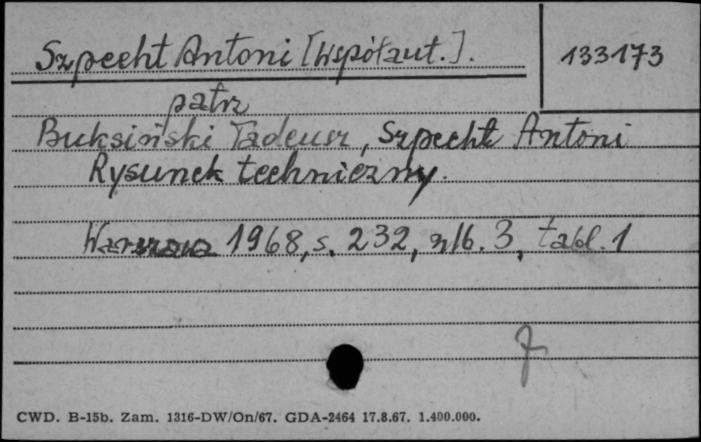 Szpecht Antoni [Współaut.].
133173
patrz
Buksiński Tadeusz, Szpecht Antoni
Rysunek techniczny.
Warszawa 1968, s. 232, nlb. 3, tabl. 1
7
CWD. B-15b. Zam. 1316-DW/On/67. GDA-2464 17.8.67. 1.400.000.